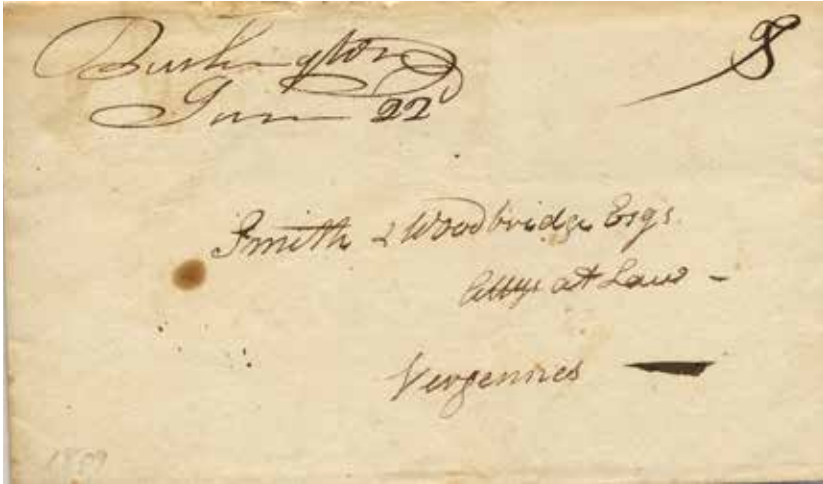 Burlington 8
June 22d
Smith & Woodbridge Esqs.
Attys at Law -
Vergennes
1809